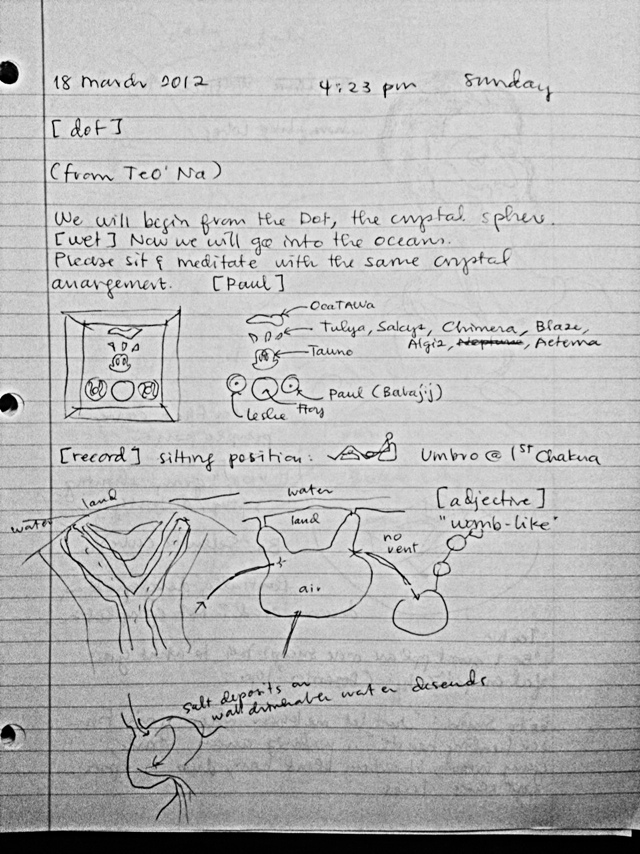 18 march 2012 4:23 pm sunday
[dot]
(from Teo'Na)
We will begin from the Dot, the crystal sphere.
[wet] Now we will go into the oceans.
Please sit & meditate with the same crystal
arrangement. [Paul]
OcaTAWa
Tulya, Salcyz, Chimera, Blaze,
Algiz, Neptune, Aeterna
Tauno
Paul (Babajij)
Leslie
[record] sitting position: Umbro @ 1st Chakra
land
water
water
land
air
no
vent
[adjective]
"womb-like"
salt deposits on
wall drinkable water desends